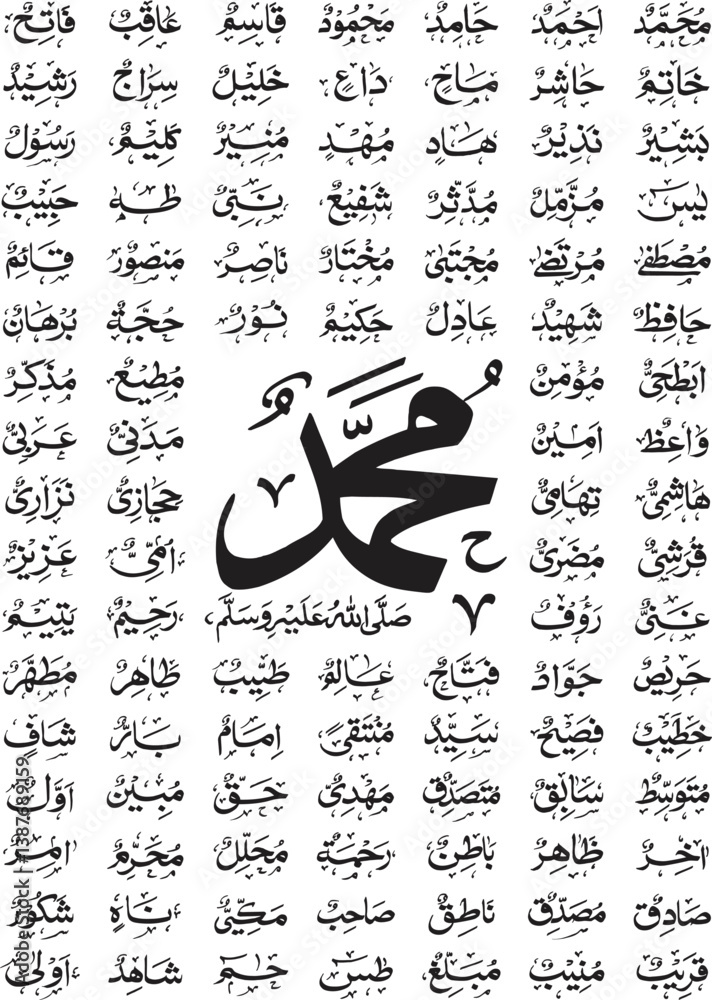 مُحَمَّدٌ اَحْمَدٌ حَامِدٌ مَحْمُوْدٌ قَاسِمٌ عَاقِبٌ فَاتِحٌ
خَاتِمٌ حَاشِرٌ مَاحٍ دَاعٍ خَلِيْلٌ سِرَاجٌ رَشِيْدٌ
بَشِيْرٌ نَذِيْرٌ هَادٍ مُهْدٍ مُنِيْرٌ كَلِيْمٌ رَسُوْلٌ
يٰسٓ مُزَّمِّلٌ مُدَّثِّرٌ شَفِيْعٌ نَبِيٌّ طٰهٰ حَبِيْبٌ
مُصْطَفٰى مُرْتَضٰى مُجْتَبٰى مُخْتَارٌ نَاصِرٌ مَنْصُوْرٌ قَائِمٌ
حَافِظٌ شَهِيْدٌ عَادِلٌ حَكِيْمٌ نُوْرٌ حُجَّةٌ بُرْهَانٌ
اَبْطَحِيٌّ مُؤْمِنٌ مُطِيْعٌ مُذَكِّرٌ
وَاعِظٌ اَمِيْنٌ مَدَنِيٌّ عَرَبِيٌّ
هَاشِمِيٌّ تِهَامِيٌّ حِجَازِيٌّ نَزَارِيٌّ
قُرَشِيٌّ مُضَرِيٌّ اُمِّيٌّ عَزِيْزٌ
مُحَمَّدٌ
غَنِيٌّ رَؤُفٌ صَلَّى اللهُ عَلَيْهِ وَسَلَّمَ رَحِيْمٌ يَتِيْمٌ
حَرِيْصٌ جَوَادٌ فَتَّاحٌ عَالِمٌ طَيِّبٌ طَاهِرٌ مُطَهَّرٌ
خَطِيْبٌ فَصِيْحٌ سَيِّدٌ مُنْتَقًى اِمَامٌ بَارٌّ شَافٍ
مُتَوَسِّطٌ سَابِقٌ مُتَصَدِّقٌ مَهْدِيٌّ حَقٌّ مُبِيْنٌ اَوَّلٌ
اٰخِرٌ ظَاهِرٌ بَاطِنٌ رَحْمَةٌ مُحَلِّلٌ مُحَرِّمٌ اٰمِرٌ
صَادِقٌ مُصَدِّقٌ نَاطِقٌ صَاحِبٌ مَكِّيٌّ نَاهٍ شَكُوْرٌ
قَرِيْبٌ مُنِيْبٌ مُبَلِّغٌ طٰسٓ حٰمٓ شَاهِدٌ اَوْلٰى
Adobe Stock | #1387689159